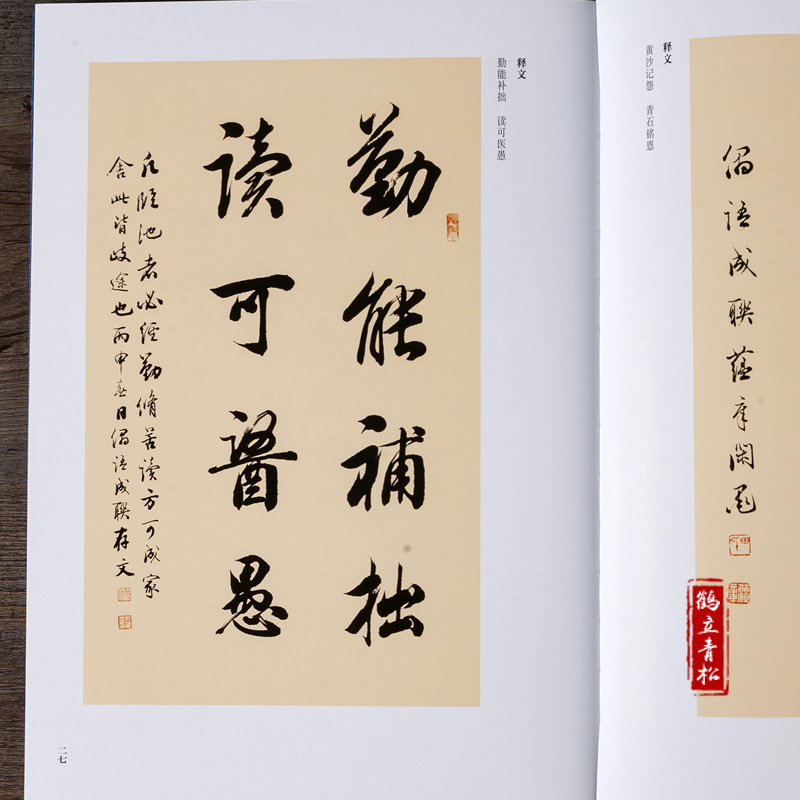 释文
勤能补拙　读可医愚
勤能補拙
读可醫愚
凡臨池者必經勤脩苦读方可成家
舍此皆歧途也丙申春日偶語成聯存文
二七
释文
黄沙记怨　青石铭恩
偶語成聯蕴章闲墨
鹤立青松